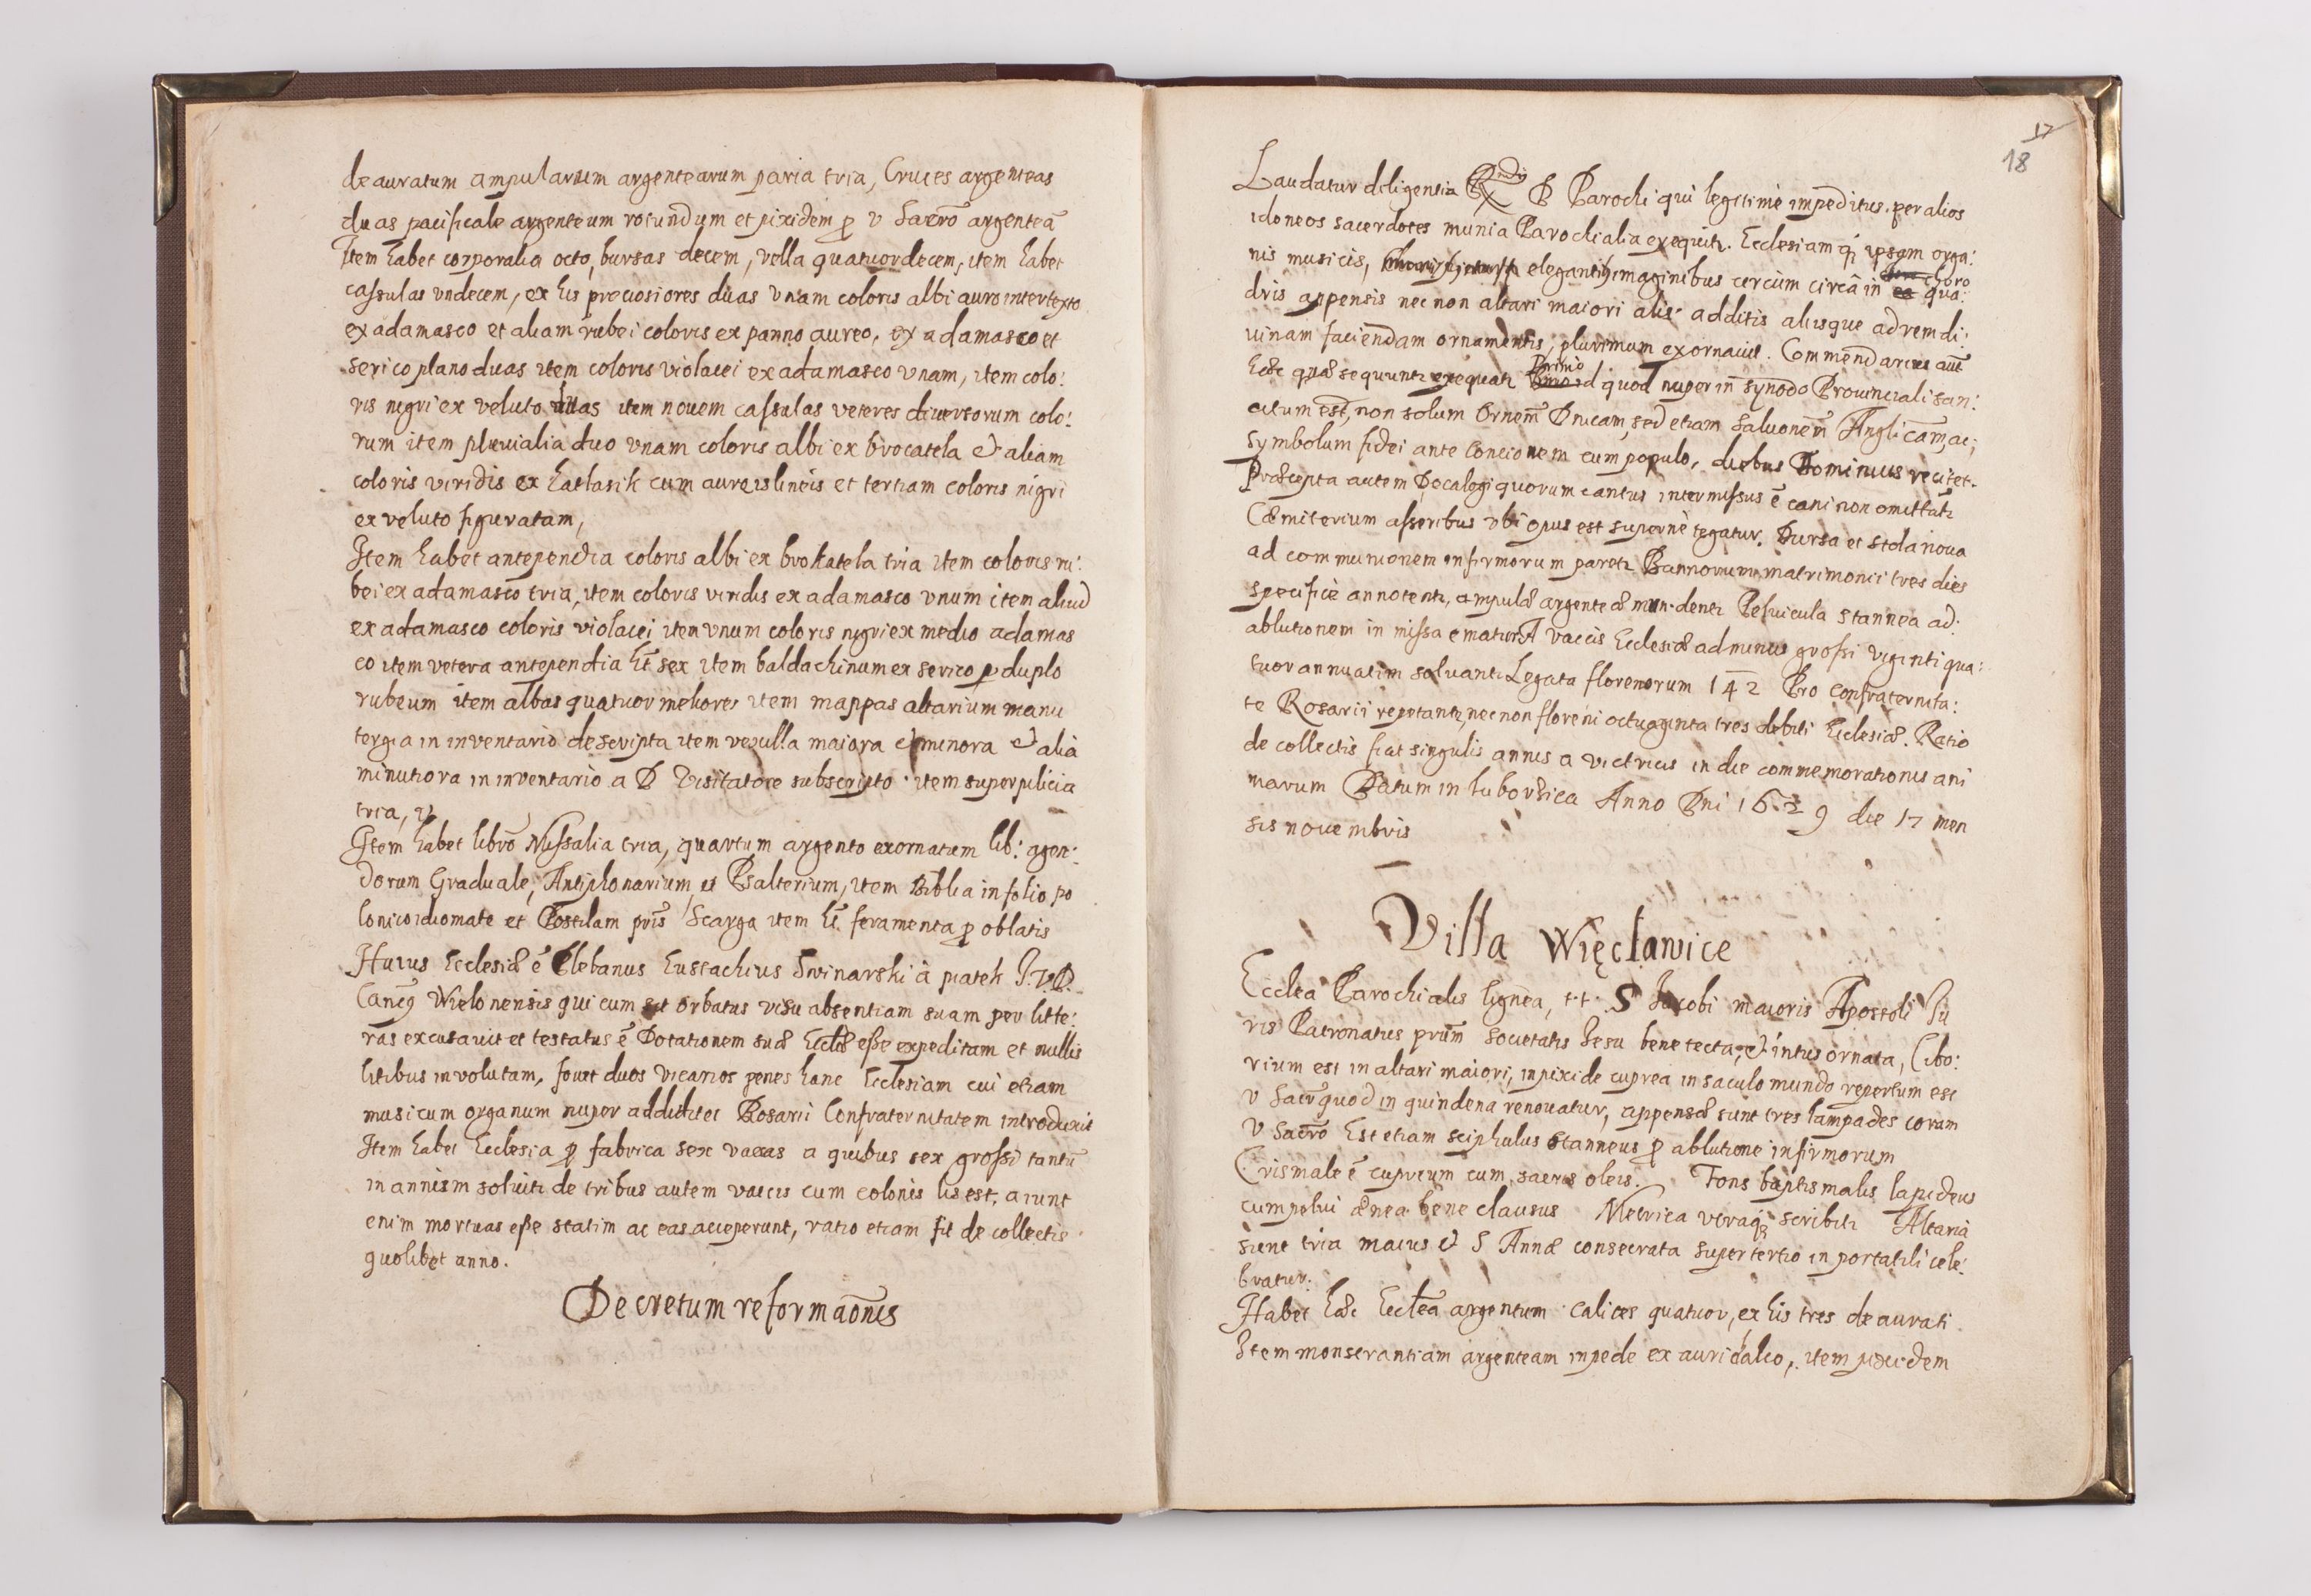 deauratum ampularum argentearum paria tria, Cruces argenteas
duas pacificale argenteum rotundum et pixidem p v Sacrō argenteā
Item habet corporalia octo, bursas decem, vella quatuordecem, item habet
cassulas vndecem, ex his preciosiores duas vnam coloris albi auro intertexto
ex adamasco et aliam rubei coloris ex panno aureo, ex adamasco et
serico plano duas item coloris violacei ex adamasco vnam, item colo:
ris nigri ex veluto duas item nouem cassulas veteres diuersorum colo:
rum item pluuialia duo vnam coloris albi ex brocatela et aliam
coloris viridis ex hatlasik cum aureis lineis et tertiam coloris nigri
ex veluto figuratam,
Item habet antependia coloris albi ex brokatela tria item coloris ru:
bei ex adamasco tria, item coloris viridis ex adamasco vnum item aliud
ex adamasco coloris violacei item vnum coloris nigri ex medio adamas
co item vetera antependia ht̄ sex item baldachinum ex serico p duplo
rubeum item albas quatuor meliores item mappas altarium manu
tergia in inventario descripta item vexulla maiora et minora et alia
minutiora in inventario a D Visitatore subscripto item superpilicia
tria,
Item habet librō Missalia tria, quartum argento exornatum lib: agen:
dorum Graduale, Antiphonarium et Psalterium, item Biblia in folio po
lonico idiomate et Postilam pris Scarga item ht̄ feramenta p oblatis
Huius Ecclesiæ ē Plebanus Eustachius Swinarski à piatek J.V.D.
Canco Wielonensis qui cum sit orbatus visu absentiam suam per litte:
ras excusauit et testatus ē Dotationem suæ Eccliæ esse expeditam et nullis
litibus inuolutam, fouet duos vicarios penes hanc Ecclesiam cui etiam
musicum organum nuper addidit et Rosarii Confraternitatem introduxit
Item habet Ecclesia p fabrica sex vacas a quibus sex grossi tantū
in annum soluitr de tribus autem vaccis cum colonis lis est, aiunt
enim mortuas esse statim ac eas acceperunt, ratio etiam fit de collectis
quolibet anno.
Decretum reformaōnis
17
18
Laudatur diligentia Rndi D Parochi qui legitimè impeditus per alios
idoneos sacerdotes munia Parochialia exequitr. Ecclesiam q ipsam orga:
nis musicis, elegantib imaginibus circum circà in choro qua:
dris appensis nec non altari maiori alis additis aliisque ad rem di:
uinam faciendam ornamentis, plurimum exornauit. Commendantur aūt
hæc quæ sequuntr exequatr Primò id quod nuper in synodo Prouinciali san:
citum est, non solum Ornem Dnicam, sed etiam Saluonem Anglicam, ac,
symbolum fidei ante Concionem cum populo, diebus Dominicis recitet.
Præcepta autem Decalogi quorum cantus intermissus ē cani non omittatr
Cæmiterium asseribus vbi opus est supernè tegatur. Bursa et stola noua
ad communionem infirmorum paretr Bannorum matrimonii tres dies
specificè annotentr, ampulæ argenteæ mundentr Pelvicula stannea ad:
ablutionem in missa ematur A vaccis Ecclesiæ ad minus grossi viginti qua:
tuor annuatim soluantr Legata florenorum 142 Pro Confraternita:
te Rosarii repetantr, nec non floreni octuaginta tres debiti Ecclesiæ. Ratio
de collectis fiat singulis annis a victricis in die commemorationis ani
marum Datum in Luborzica Anno Dni 1629 die 17 men
sis nouembris
Villa Więcławice
Ecclea Parochialis lignea, tt. S Jacobi maioris Apostoli Ju
ris Patronatus prum Societatis Jesu bene tecta, et intus ornata, Cibo:
rium est in altari maiori, in pixide cuprea in saculo mundo repertum est
v Sacrm quod in quindena renouatur, appensæ sunt tres lampades coram
v Sacrō Est etiam sciphulus stanneus p ablutione infirmorum
Crismale ē cupreum cum sacris oleis. Fons baptismalis lapideus
cum pelui ænea bene clausus Metrica vtraq scribitr Altaria
sunt tria maius et S Annæ consecrata super tertio in portatili cele:
bratur.
Habet hæc Ecclea argentum calices quatuor, ex his tres deaurati
Item monstrantiam argenteam in pede ex auricalco, item pixidem